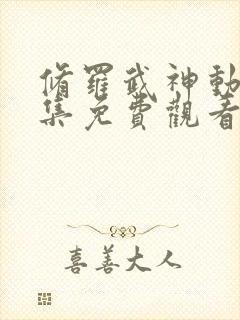 脩羅武神動
集免費觀看
喜善大人